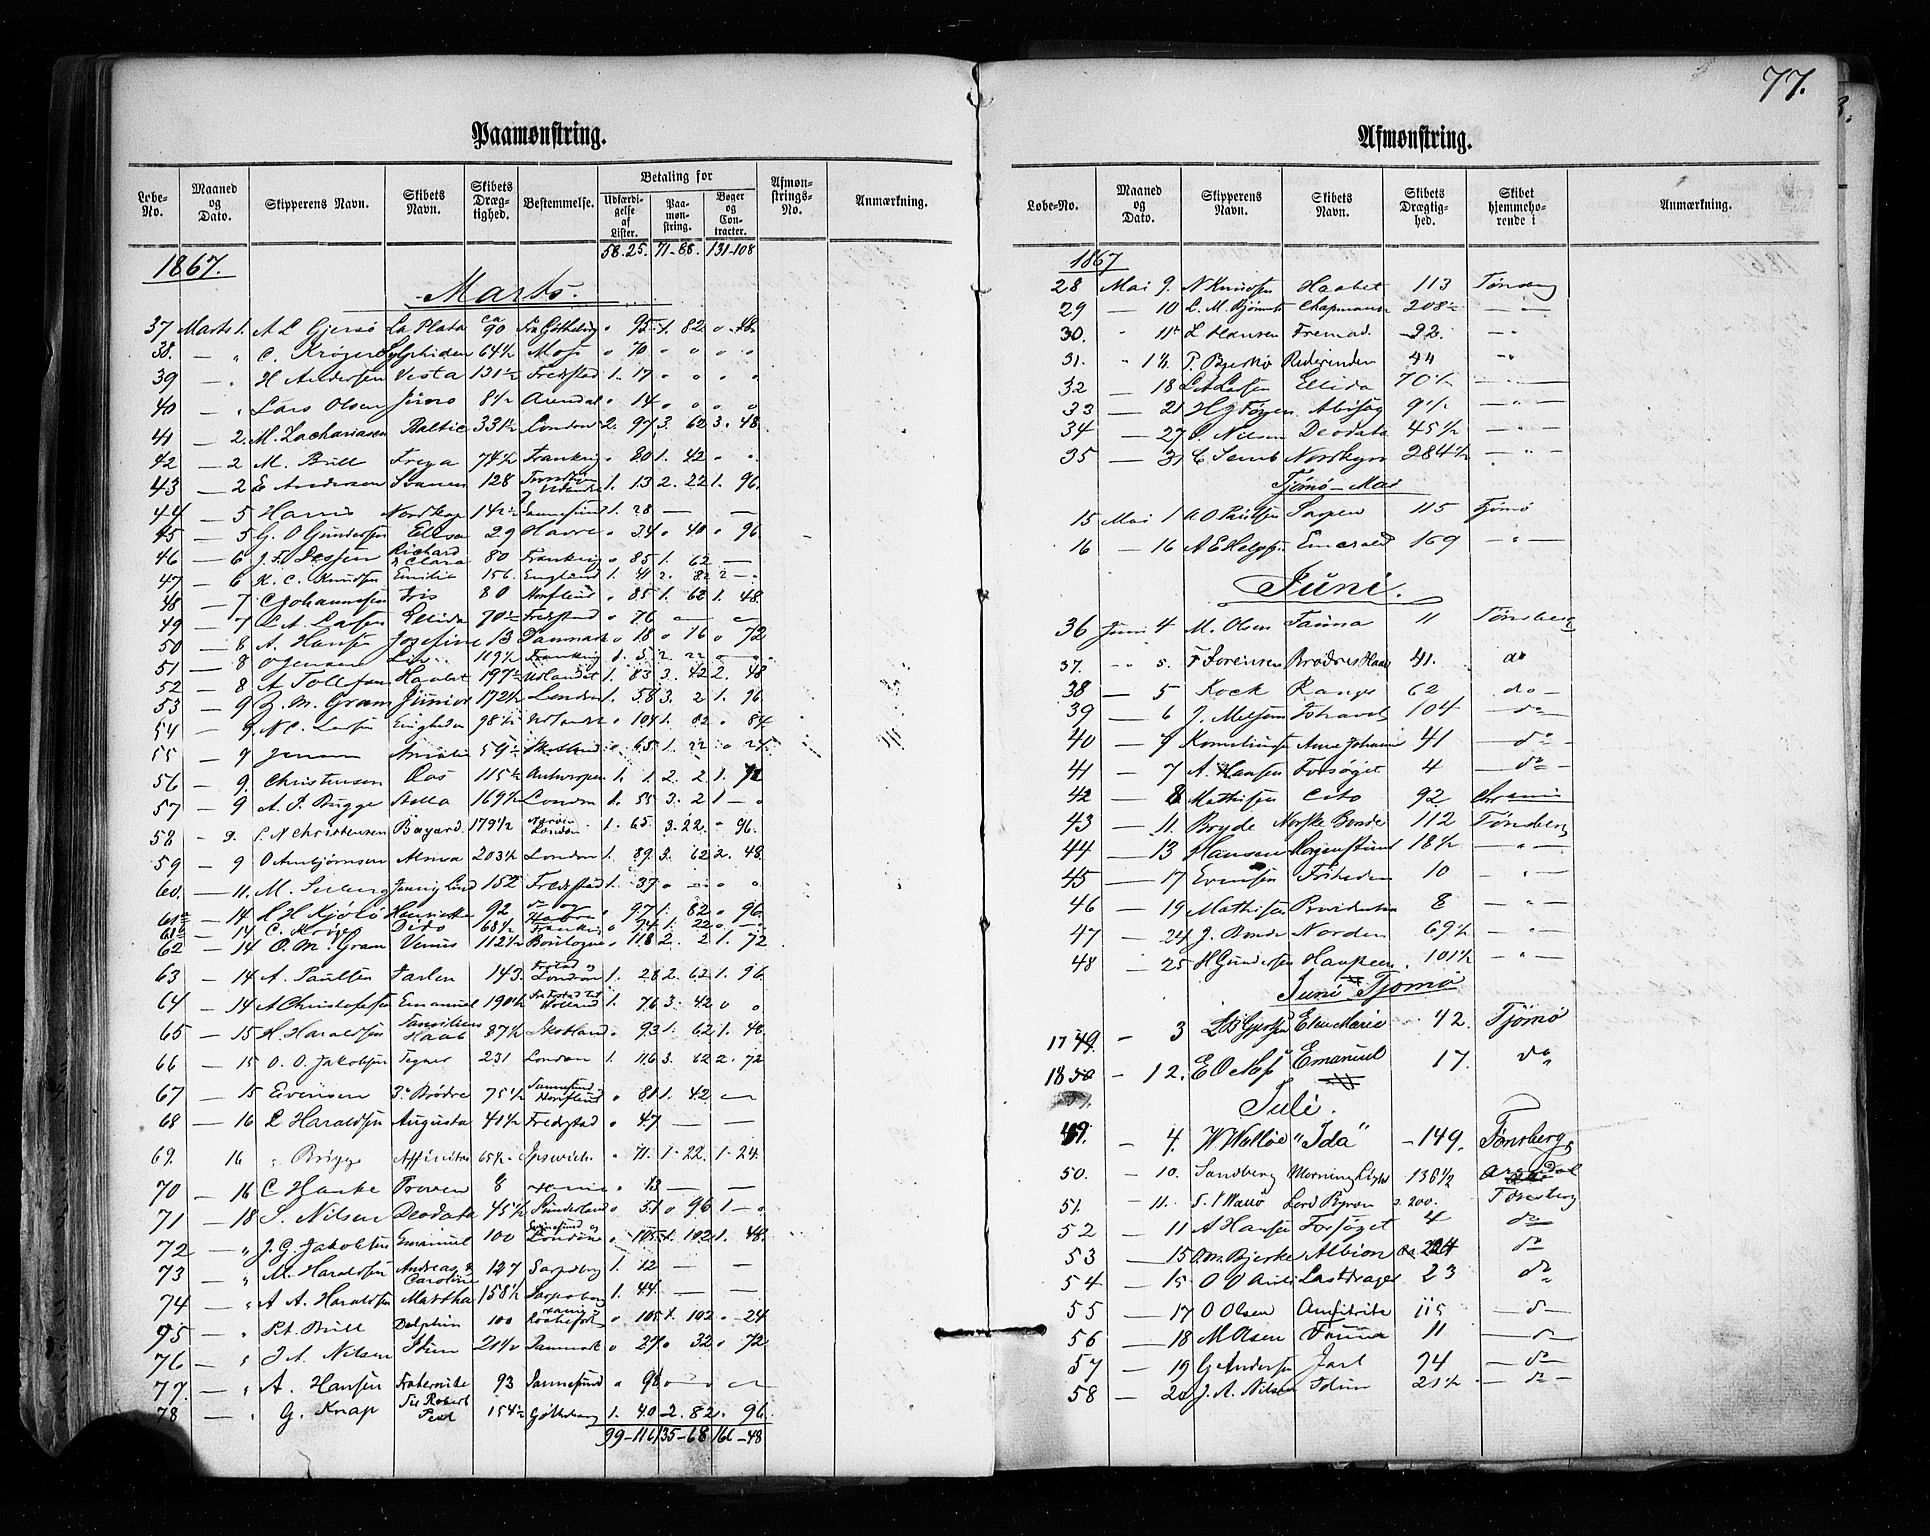 77.
Paamønstring.
Løbe-No. Maaned og Dato. Skipperens Navn. Skibets Navn. Skibets Dræg-tighed. Bestemmelse. Betaling for Udfærdi-gelse af Lister. Paa-møn-string. Bøger og Con-tracter. Afmøn-strings-No. Anmærkning.
58.25. 71-88. 131-108
1867.
Marts.
37 Marts 1. A L Gjersø La Plata ca 90 Fra Gøtheborg " 95 1. 82 " 48.
38. — " C. Krøger Sylphiden 64½ Moss " 70 " " " "
39 — " H Andersen Vesta 131½ Fredstad 1. 17 " " " "
40 — " Lars Olsen 8½ Arendal " 14 " " " "
41 — 2. M. Zachariasen Baltic 331½ London 2. 97 3. 62 3. 48.
42 — 2 M. Bull Freya 74½ Frankrig " 80 1. 42 " "
43 — 2 E Andersen Svanen 128 1. 13 2. 22 1. 96.
44 — 5 Harris Nordkap 142½ Sannesund 1. 28 — —
45 — 5 G. O Gundersen Ellisa 29 Havre " 34 " 40 " 96.
46 — 6 Richard & Clara 80 Frankrig " 85 1. 62 —
47 — 6 H. C. Knudsen Emilie 156. England 1. 41 2. 82 2 — "
48 — 7 C Johannesen Iris 80 " 85 1. 62 1. 48.
49 — 7 L A Larsen Ellida 70½ Fredstad " 76 — —
50 — 8 A. Hansen Josefine 13 Danmark " 18 " 16 " 72
51 — 8 O Jensen 119½ Frankrig 1. 5 2. 22 " — "
52 — 8 A Tollefsen Haabet 197½ Udlandet 1. 83 3. 42 2. 48
53 — 9 Z. M. Gram Junior 172½ London 1. 58 3. 2 1. 96
54 — 9 N C. Larsen Enigheden 98½ Udlandet " 104 1. 82 " 84
55 — 9 Jensen Amalie 59½ " 65 1. 22 " 24.
56 — 9. Christensen 115½ Antwerpen 1. 1 2. 2 1. 72
57 — 9 A. F. Bugge Stella 169½ London 1. 55 3. 2 1 — "
58 — 9. P. N Christensen Bayard 179½ London 1. 65. 3. 22. " 96.
59 — 9 O Anbjørnsen Alma 203½ London 1. 89. 3. 62 2. 48.
60. — 11. M. Jenny Lind 152 Fredstad 1. 37 " — " "
61a — 14 H H Kjølø Henriette 92 do og Havre " 97 1. 82 " 96.
61b — 14 C. Dido 68½ Frankrig " 74 1. 22 " — "
62 — 14 O. M. Gram Venus 112½ Boulogne " 118 2. 2 1. 72
63 — 14 A. Paulsen Jarlen 143. Frstad og London 1. 28 2. 62 1. 96.
64 — 14 A Christofersen Emanuel 190½ Fra Frstad til Holland 1. 76 3. 42 " "
65 — 15 H. Haraldsen Familiens Haab 87½ Skotland " 93 1. 62 1. 48
66 — 15 O. O. Jakobsen Tegner 231 London 1. 116 3. 62 2. 72
67 — 15 Evensen 3de Brødre 75½ Sannesund " 81 1. 42 —
68 — 16 L Haraldsen Augusta 41½ Fredstad " 47 — —
69. 16 " Brügge Affinitas 65½ Ipswich " 71. 1 - 22. 1 - 24.
70 — 16 C Hanke Proven 8 " 13 — —
71 — 18 S. Nilsen Deodata 45½ Sunderland " 51 " 96 1 — "
72 — " J. G. Jakobsen Emanuel 100 Sannesund og London " 105 1. 102 1. 48.
73 — " M. Haraldsen Andreas & Caroline 127 Sarpsborg 1. 12 — —
74 — " A A. Haraldsen Martha 158½ Sarpsborg 1. 44 — —
75 — " Pet. Bull Delphin 100 Rochefort " 105 1. 102 " 24
76 — " J A. Nilsen Idun 21½ Danmark " 27 " 32 " 72
77. — " A. Hansen Fraternite 93 Sannesund " 98 " — " —
78 — " G. Knap Sir Robert Peel 154½ Gøtheborg 1. 40 2. 82 " 96.
99-116 135-68 166-48
Afmønstring.
Løbe-No. Maaned og Dato. Skipperens Navn. Skibets Navn. Skibets Drægtig-hed. Skibet hjemmehø-rende i Anmærkning.
1867
28 Mai 9. N Knudsen Haabet 113 Tønsberg
29 10 L. M. Bjønnes Chapmann 208½ — " —
30. " 11 L Hansen Fremad 92. — " —
31. " 1 P. Bjerkø Rederenden 44 — " —
32 — 18 L A Larsen Ellida 70½ — " —
33 — 21 H J Abisag 9½ — " —
34 — 27 S. Nilsen Deodata 45½ — " —
35 — 31 C Semb Norskyn 284½ — " —
Tjømø - Mai
15 Mai 1 A O Paulsen Sarpen 115 Tjømø
16 — 16 A E Helgesen Emerald 169 — " —
Juni.
36 Juni 4 M. Olsen Fauna 11 Tønsberg
37. " 5. F Sørensen Brødres Haab 41. do
38 — 5 Kock Ranger 62 do -
39 — 6 J. Johanes 104 — do
40 — 7 Korneliussen Anne Johanne 41 — do
41 — 7 A. Hansen Forsøget 4 — do —
42 — 8 Mathisen Cito 92
43 — 11. Bryde Norske Bonde 112 Tønsberg
44 — 13 Hansen Morgenstund 18½ — " —
45 — 17 Evensen Friheden 10 — " —
46 — 19 Mathisen Providentia 8 — " —
47 — 24 J. Bonde Norden 69½ — " —
48 — 25 H Gundersen 101½ — " —
Juni Tjømø
17 49. — 3 L B Gjersøe Elen Marie 42. Tjømø
18 50 — 12. E O Emanuel 17. do
Juli.
49. — 4. W Walløe "Ida" 149. Tønsberg
50. — 10. Sandberg Morning Light 136½ Arendal
51. — 11. Lord Byron c. 200. Tønsberg
52 — 11 A Hansen Forsøget 4 do
53 — 15 O. M. Bjerke Albion Ca 224 do
54 — 15 O O Lastdrager 23 do
55 — 17 O Olsen Amfitrite 115 — do
56 — 18 M Olsen Fauna 11 — do
57 — 19 G Andersen Jarl 74 — do
58 — 20 J. A. Nilsen Idun 21½ — do —